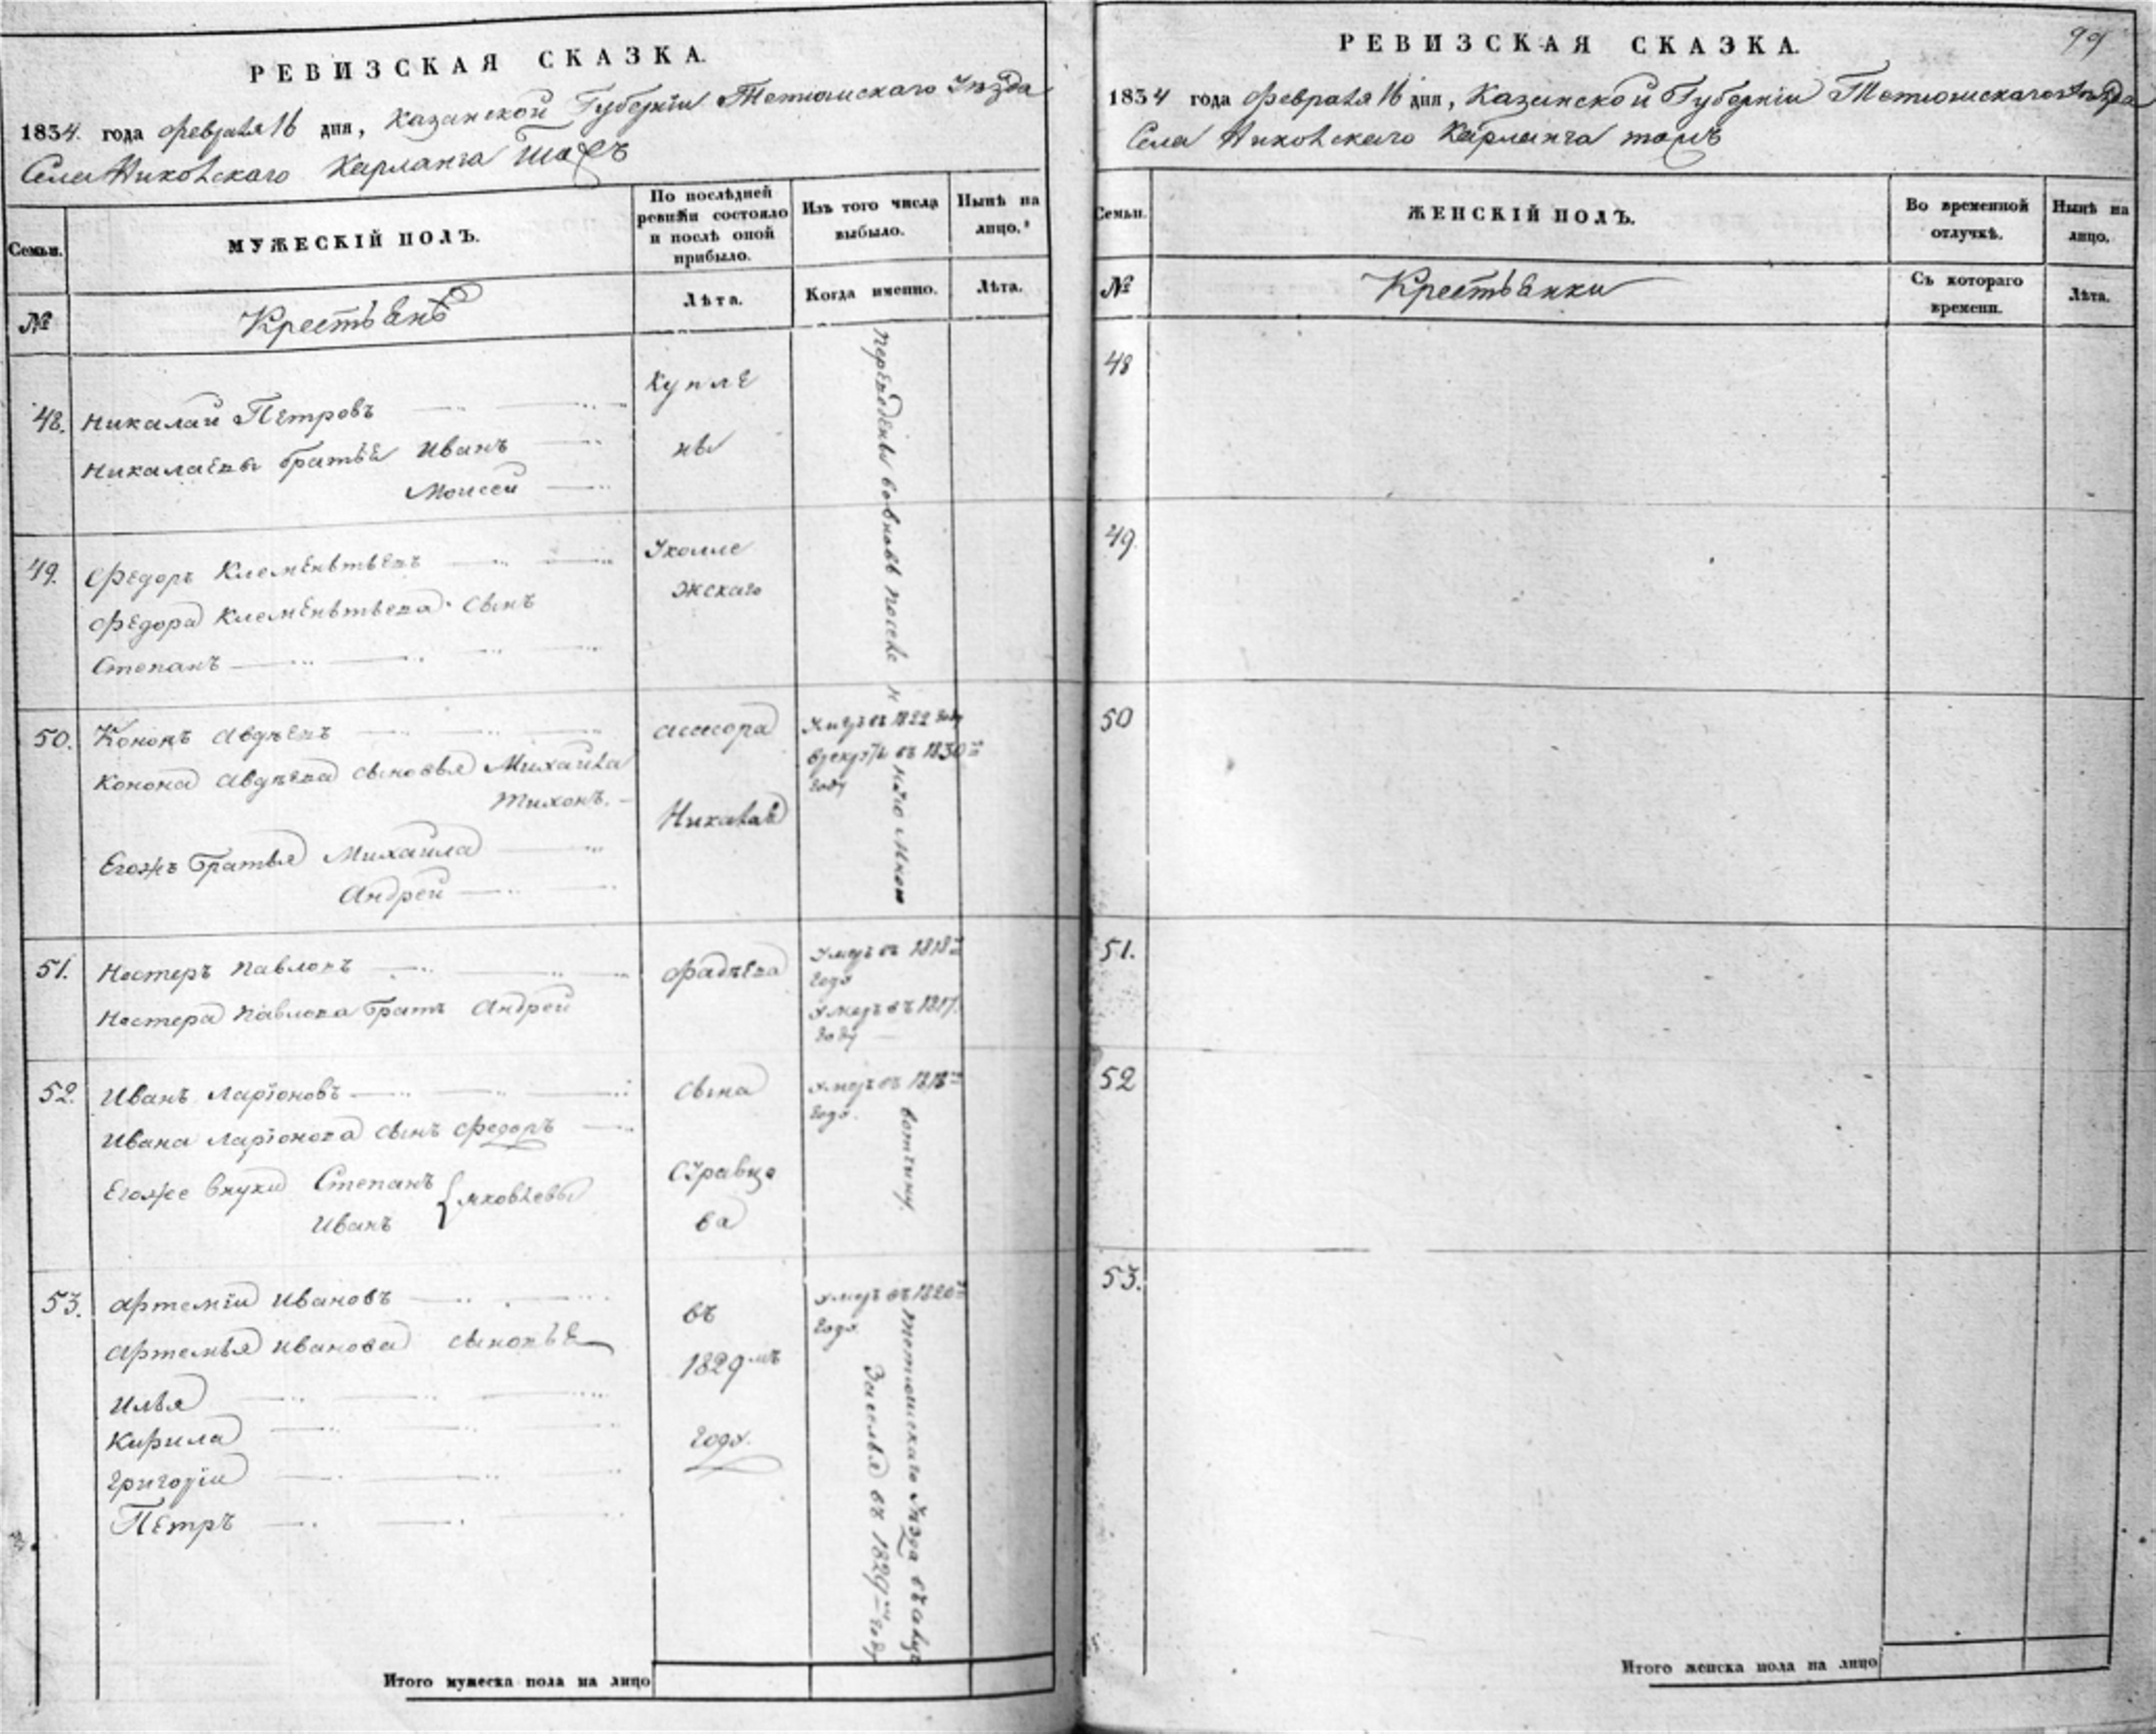 РЕВИЗСКАЯ СКАЗКА.
1834 года февраля 16 дня, Казанской Губернiи Тетюшскаго Уѣзда
Села Никольскаго Карланга тожъ
Семьи.
МУЖЕСКІЙ ПОЛЪ.
По послѣдней ревизіи состояло и послѣ оной прибыло.
Изъ того числа выбыло.
Нынѣ на лицо.
№
Крестьянѣ
Лѣта.
Когда именно.
Лѣта.
48. Никалай Петровъ
Никалаевы братьѣ Иванъ
Моисей
Купле
ны
49. Федоръ Клеменьтьевъ
Федора Клеменьтьева сынъ
Степанъ
Уколле
жскаго
50. Кононъ Авдѣевъ
Конона Авдѣева сыновья Михайла
Тихонъ.
Егожъ братья Михаила
Андрей
асесора
Никалая
Умеръ въ 1822 году
в рекруты въ 1830м
году
51. Нестеръ Павловъ
Нестера Павлова братъ Андрей
Фадѣева
Умеръ въ 1818м
годѣ
Умеръ въ 1817.
году
52. Иванъ Ларіоновъ
Ивана Ларіонова сынъ Федоръ
Егоже внуки Степанъ
Иванъ
Яковлевы
сына
ва
Умеръ въ 1818м
годѣ.
53. Артемій Ивановъ
Артемья Иванова сыновьѣ
Илья
Кирила
Григорій
Петръ
въ
1829мъ
годѣ.
Умеръ въ 1820м
годѣ.
переведены вовновь
вотчину
тетюшскаго Уѣзда
въ 1829м году
Итого мужеска пола на лицо
99
РЕВИЗСКАЯ СКАЗКА.
1834 года февраля 16 дня, Казанской Губернiи Тетюшскаго Уѣзда
Села Никольскаго Карланга тожъ
Семьи.
ЖЕНСКІЙ ПОЛЪ.
Во временной отлучкѣ.
Нынѣ на лицо.
№
Крестьянки
Съ котораго времени.
Лѣта.
48
49.
50
51.
52
53.
Итого женска пола на лицо